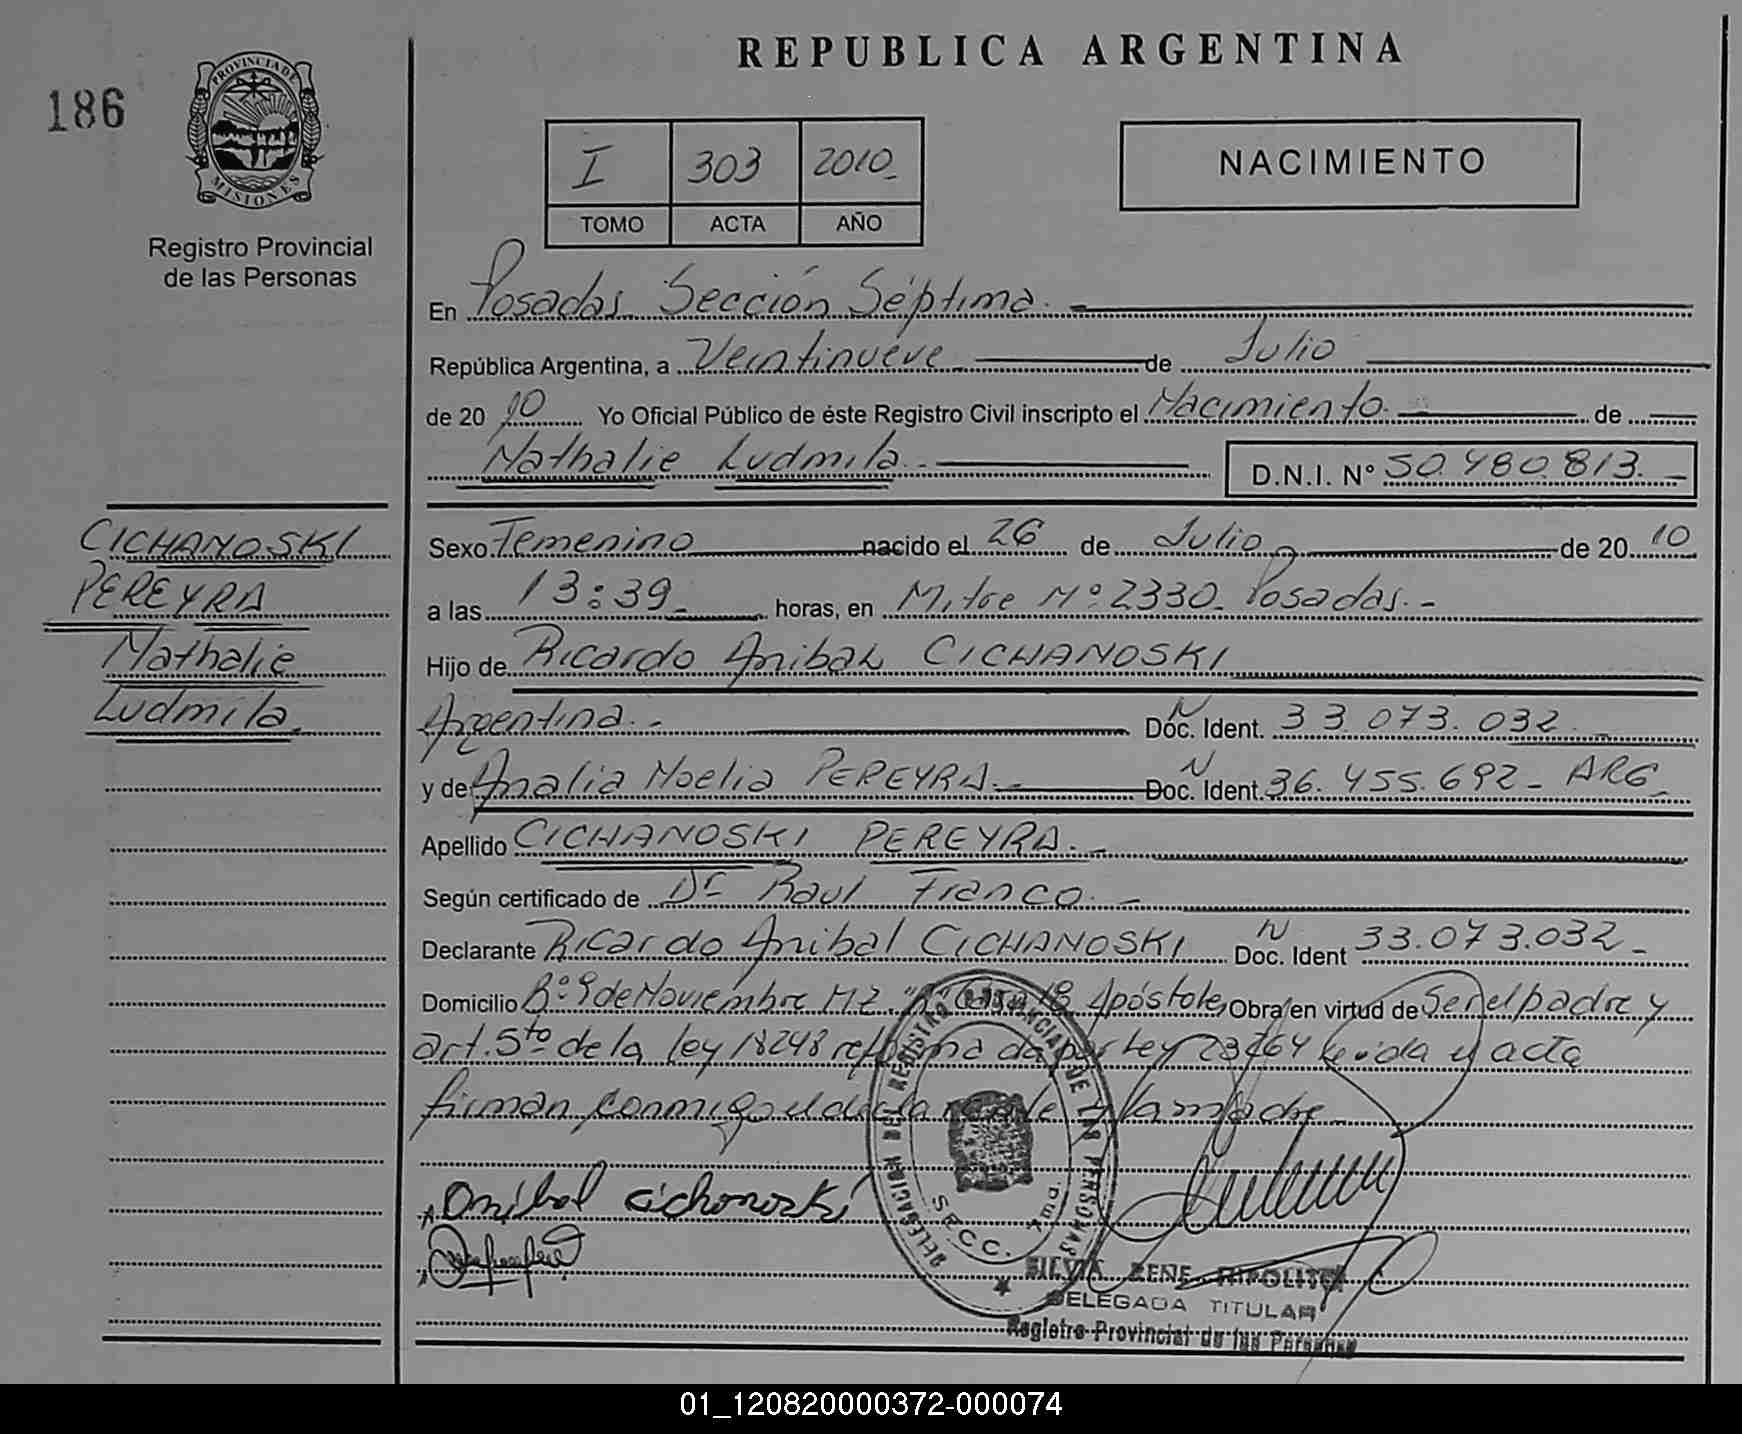 REPUBLICA ARGENTINA
186
PROVINCIA DE
MISIONES
Registro Provincial
de las Personas
I 303 2010
TOMO ACTA AÑO
NACIMIENTO
En Posadas Sección Séptima.
República Argentina, a Veintinueve de Julio
de 20 10 Yo Oficial Público de éste Registro Civil inscripto el Nacimiento de
Nathalie Ludmila. D.N.I. Nº 50.480.813.
CICHANOSKI
PEREYRA
Nathalie
Ludmila.
Sexo Femenino nacido el 26 de Julio de 20 10
a las 13:39 horas, en Mitre Nº 2330 Posadas.
Hijo de Ricardo Anibal CICHANOSKI
Argentina. N Doc. Ident. 33.073.032
y de Analia Noelia PEREYRA. N Doc. Ident. 36.455.692 - ARG
Apellido CICHANOSKI PEREYRA.
Según certificado de Dr Raul Franco.
Declarante Ricardo Anibal CICHANOSKI N Doc. Ident 33.073.032
Domicilio Bº 9 de Noviembre MZ. "R" Casa 18 Apóstoles Obra en virtud de Ser el padre y
art. 5to de la ley 18248 reformada por Ley 23264 Leida el acta
firman conmigo el declarante y la madre
Anibal Cichanoski
DELEGACION DEL REGISTRO PROVINCIAL DE LAS PERSONAS
SECC. 7ma.
SILVIA RENE HIPOLITO
DELEGADA TITULAR
Registro Provincial de las Personas
01_120820000372-000074